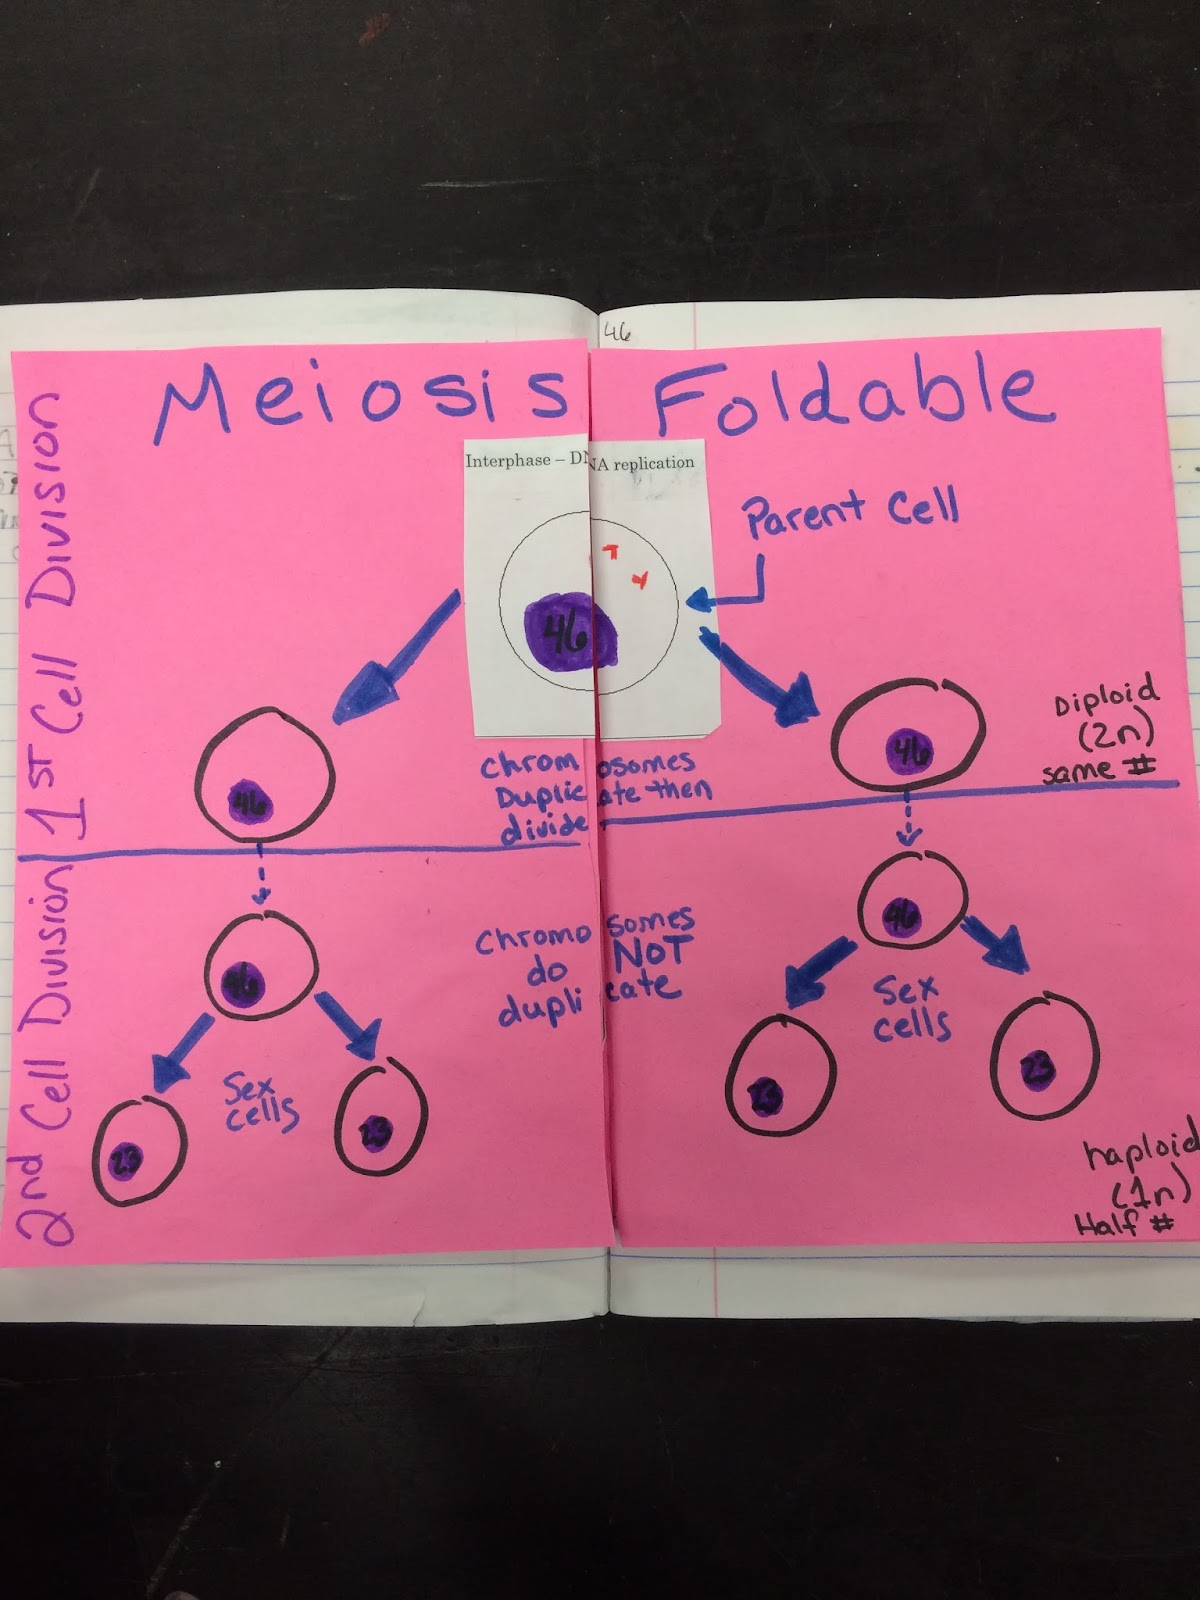 46
Meiosis Foldable
Interphase – DNA replication
Parent Cell
46
1st Cell Division
46
46
Diploid
(2n)
same #
Chromosomes
Duplicate then
divide
2nd Cell Division
46
46
Chromosomes
do NOT
duplicate
Sex
cells
Sex
cells
23
23
23
23
haploid
(1n)
Half #